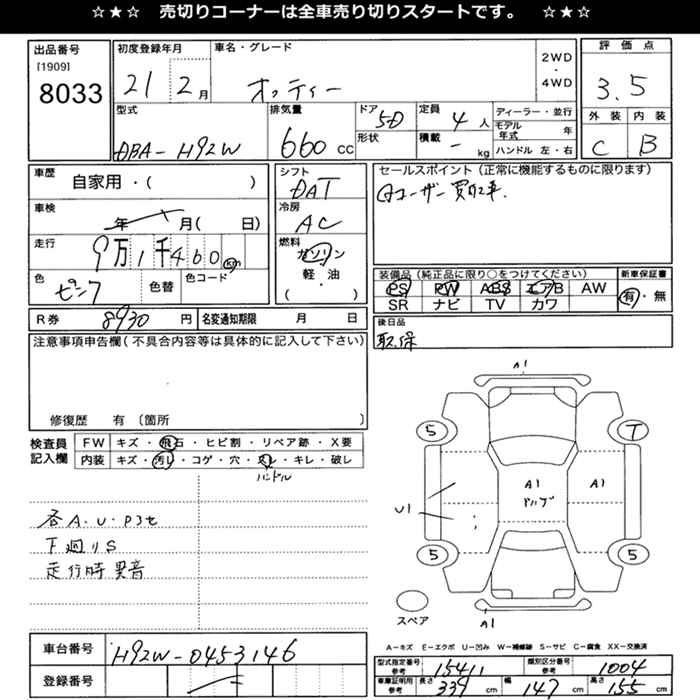 ☆★☆ 売切りコーナーは全車売り切りスタートです。 ☆★☆
出品番号
[1909]
8033
初度登録年月
21 2 月
車名・グレード
オッティー
2WD
・
4WD
評価点
3.5
外装 内装
C B
型式
DBA-H92W
排気量
660 cc
ドア
5D
形状
定員
4 人
積載
- kg
ディーラー・並行
モデル年式 年
ハンドル 左・右
車歴
自家用・( )
車検
年 月( 日)
走行
9万1千460 km
色
ピンク
色替
色コード
シフト
DAT
冷房
AC
燃料
ガソリン
軽・油
( )
セールスポイント(正常に機能するものに限ります)
ユーザー買取車.
装備品(純正品に限り○をつけてください)
PS PW ABS エアB AW
SR ナビ TV カワ
新車保証書
有・無
R券 8930 円
名変通知期限 月 日
後日品
取.保
注意事項申告欄(不具合内容等は具体的に記入して下さい)
修復歴 有 〔箇所 〕
検査員
記入欄
FW キズ・飛石・ヒビ割・リペア跡・X要
内装 キズ・汚れ・コゲ・穴・スレ・キレ・破レ
ハンドル
各A.U.Pコセ
下廻りS
走行時異音
A1
5 T
U1
A1
A1
5 5
スペア
A1
A-キズ E-エクボ U-凹み W-補修跡 S-サビ C-腐食 XX-交換済
車台番号 H92W-0453146
登録番号
型式指定番号 参考 15411
類別区分番号 参考 1004
車庫証明用 参考 長さ 339 cm 幅 147 cm 高さ 155 cm